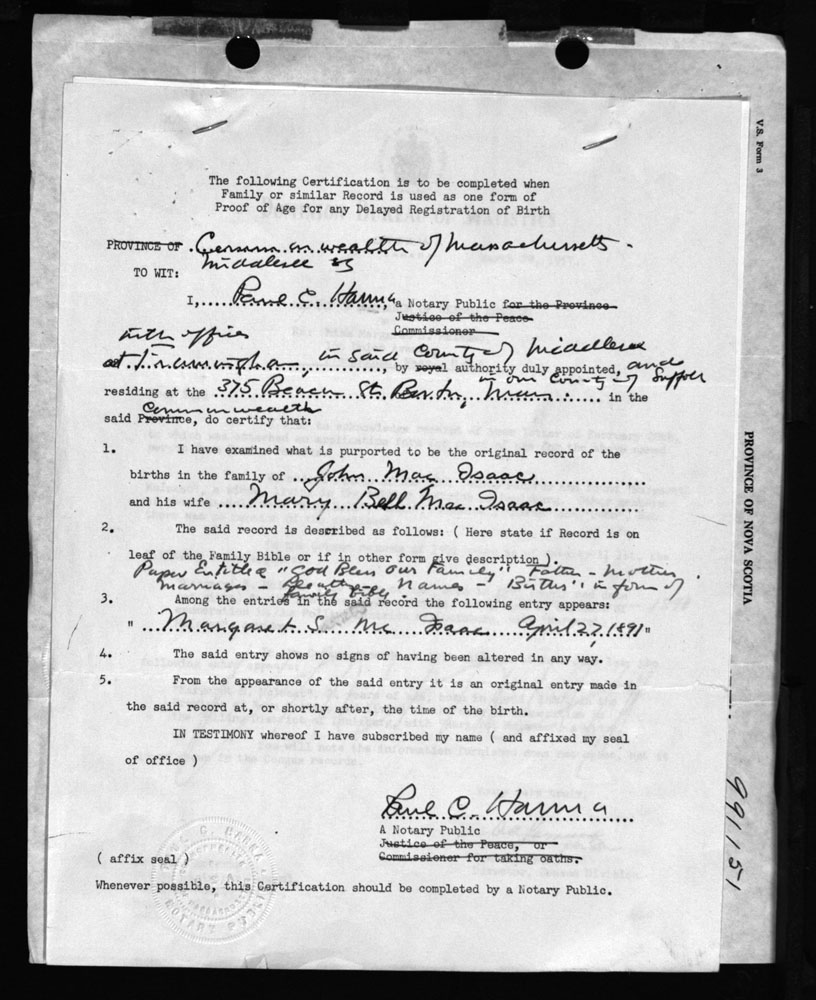 The following Certification is to be completed when
Family or similar Record is used as one form of
Proof of Age for any Delayed Registration of Birth
PROVINCE OF Commonwealth of Massachusetts
Middlesex ss
TO WIT:
I, Paul C. Hanna, a Notary Public for the Province
Justice of the Peace
Commissioner
with office
at Framingham, in said County of Middlesex
by royal authority duly appointed, and
in our County of Suffolk
residing at the 375 Beacon St. Boston, Mass. in the
Commonwealth
said Province, do certify that:
1. I have examined what is purported to be the original record of the
births in the family of John Mac Isaac
and his wife Mary Bell Mac Isaac
2. The said record is described as follows: ( Here state if Record is on
leaf of the Family Bible or if in other form give description ).
Paper Entitled "God Bless Our Family" Father - Mother
Marriages - Deaths - Names - Births" in form of
family bible.
3. Among the entries in the said record the following entry appears:
" Margaret S. Mc Isaac April 27, 1891"
4. The said entry shows no signs of having been altered in any way.
5. From the appearance of the said entry it is an original entry made in
the said record at, or shortly after, the time of the birth.
IN TESTIMONY whereof I have subscribed my name ( and affixed my seal
of office )
Paul C. Hanna
A Notary Public
Justice of the Peace, or
Commissioner for taking oaths.
( affix seal )
PAUL C. HANNA
NOTARY PUBLIC
Whenever possible, this Certification should be completed by a Notary Public.
V.S. Form 3
PROVINCE OF NOVA SCOTIA
991151